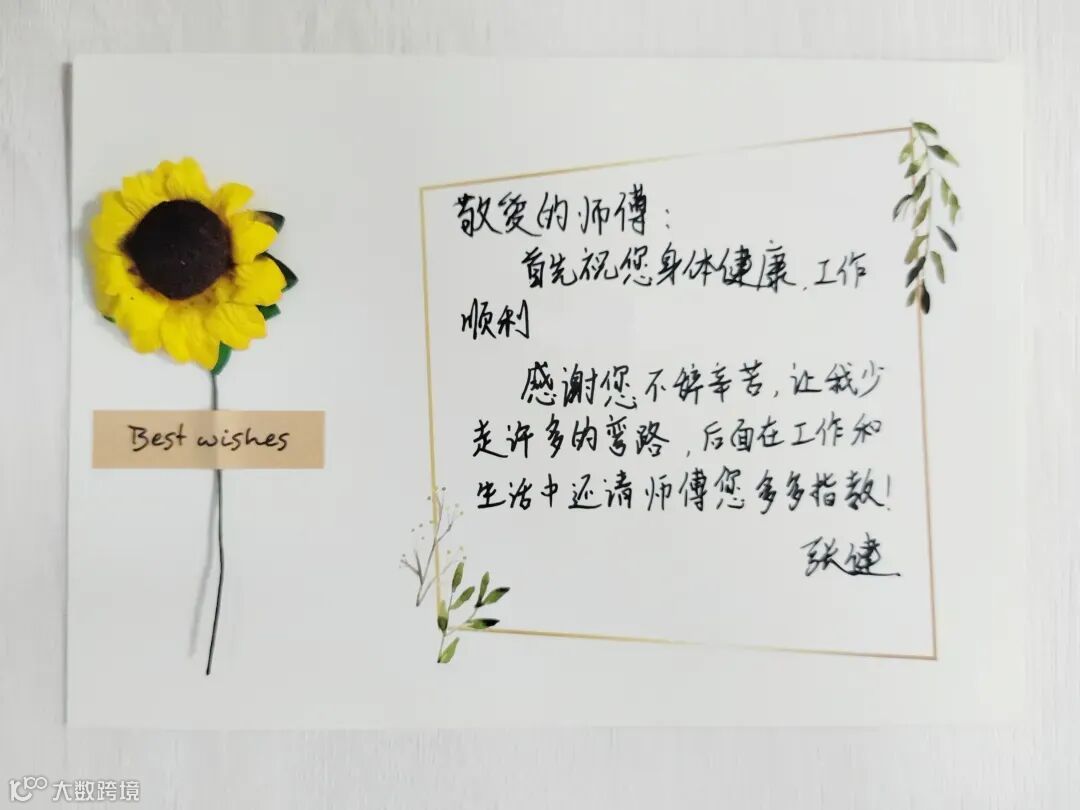 Best wishes
敬爱的师傅：
首先祝您身体健康，工作
顺利
感谢您不辞辛苦，让我少
走许多的弯路，后面在工作和
生活中还请师傅您多多指教！
张健
大数跨境